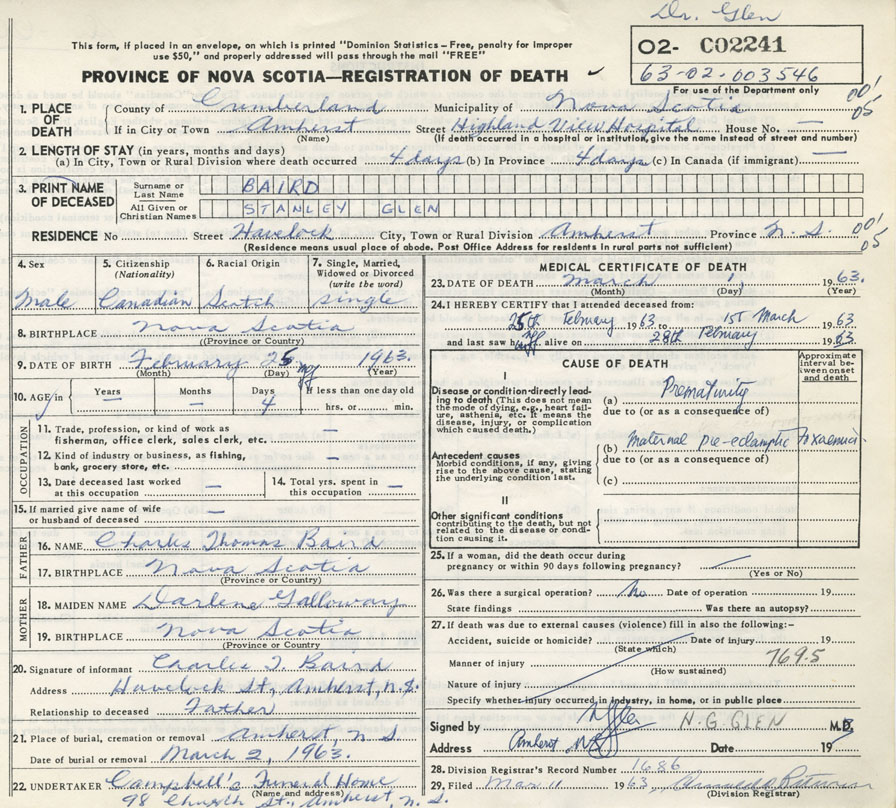 Dr. Glen
This form, if placed in an envelope, on which is printed "Dominion Statistics – Free, penalty for improper
use $50," and properly addressed will pass through the mail "FREE"
PROVINCE OF NOVA SCOTIA—REGISTRATION OF DEATH
02- C02241
63-02-003546
For use of the Department only
1. PLACE OF DEATH County of Cumberland Municipality of Nova Scotia 001
If in City or Town Amherst Street Highland View Hospital House No. — 05
(Name) (If death occurred in a hospital or institution, give the name instead of street and number)
2. LENGTH OF STAY (in years, months and days)
(a) In City, Town or Rural Division where death occurred 4 days (b) In Province 4 days (c) In Canada (if immigrant) —
3. PRINT NAME OF DECEASED Surname or Last Name BAIRD
All Given or Christian Names STANLEY GLEN
RESIDENCE No Street Havelock City, Town or Rural Division Amherst Province N.S. 001
05
(Residence means usual place of abode. Post Office Address for residents in rural parts not sufficient)
4. Sex 5. Citizenship (Nationality) 6. Racial Origin 7. Single, Married, Widowed or Divorced (write the word)
Male Canadian Scotch single
8. BIRTHPLACE Nova Scotia
(Province or Country)
9. DATE OF BIRTH February 25 1963.
(Month) (Day) (Year)
10. AGE in Years — Months — Days 4 If less than one day old hrs. or min.
OCCUPATION
11. Trade, profession, or kind of work as fisherman, office clerk, sales clerk, etc. —
12. Kind of industry or business, as fishing, bank, grocery store, etc. —
13. Date deceased last worked at this occupation — 14. Total yrs. spent in this occupation —
15. If married give name of wife or husband of deceased —
FATHER
16. NAME Charles Thomas Baird
17. BIRTHPLACE Nova Scotia
(Province or Country)
MOTHER
18. MAIDEN NAME Darlene Galloway
19. BIRTHPLACE Nova Scotia
(Province or Country)
20. Signature of informant Charles T. Baird
Address Havelock St., Amherst, N.S.
Relationship to deceased Father
21. Place of burial, cremation or removal Amherst N S
Date of burial or removal March 2, 1963.
22. UNDERTAKER Campbell's Funeral Home
(Name and address)
98 Church St., Amherst, N.S.
MEDICAL CERTIFICATE OF DEATH
23. DATE OF DEATH March 1 1963.
(Month) (Day) (Year)
24. I HEREBY CERTIFY that I attended deceased from:
25th February 1963 to 1st March 1963
and last saw h alive on 28th February 1963
CAUSE OF DEATH
Approximate interval between onset and death
I
Disease or condition directly leading to death (This does not mean the mode of dying, e.g., heart failure, asthenia, etc. It means the disease, injury, or complication which caused death.)
(a) Prematurity
due to (or as a consequence of)
Antecedent causes
Morbid conditions, if any, giving rise to the above cause, stating the underlying condition last.
(b) Maternal pre-eclamptic toxaemia.
due to (or as a consequence of)
(c)
II
Other significant conditions
contributing to the death, but not related to the disease or condition causing it.
25. If a woman, did the death occur during pregnancy or within 90 days following pregnancy?
(Yes or No)
26. Was there a surgical operation? No Date of operation 19
State findings Was there an autopsy?
27. If death was due to external causes (violence) fill in also the following:–
Accident, suicide or homicide? Date of injury 19
(State which)
Manner of injury 769.5
(How sustained)
Nature of injury
Specify whether injury occurred in industry, in home, or in public place
Signed by N. G. GLEN M.D.
Address Amherst N.S. Date 19
28. Division Registrar's Record Number 1686
29. Filed Mar 11 1963
(Division Registrar)